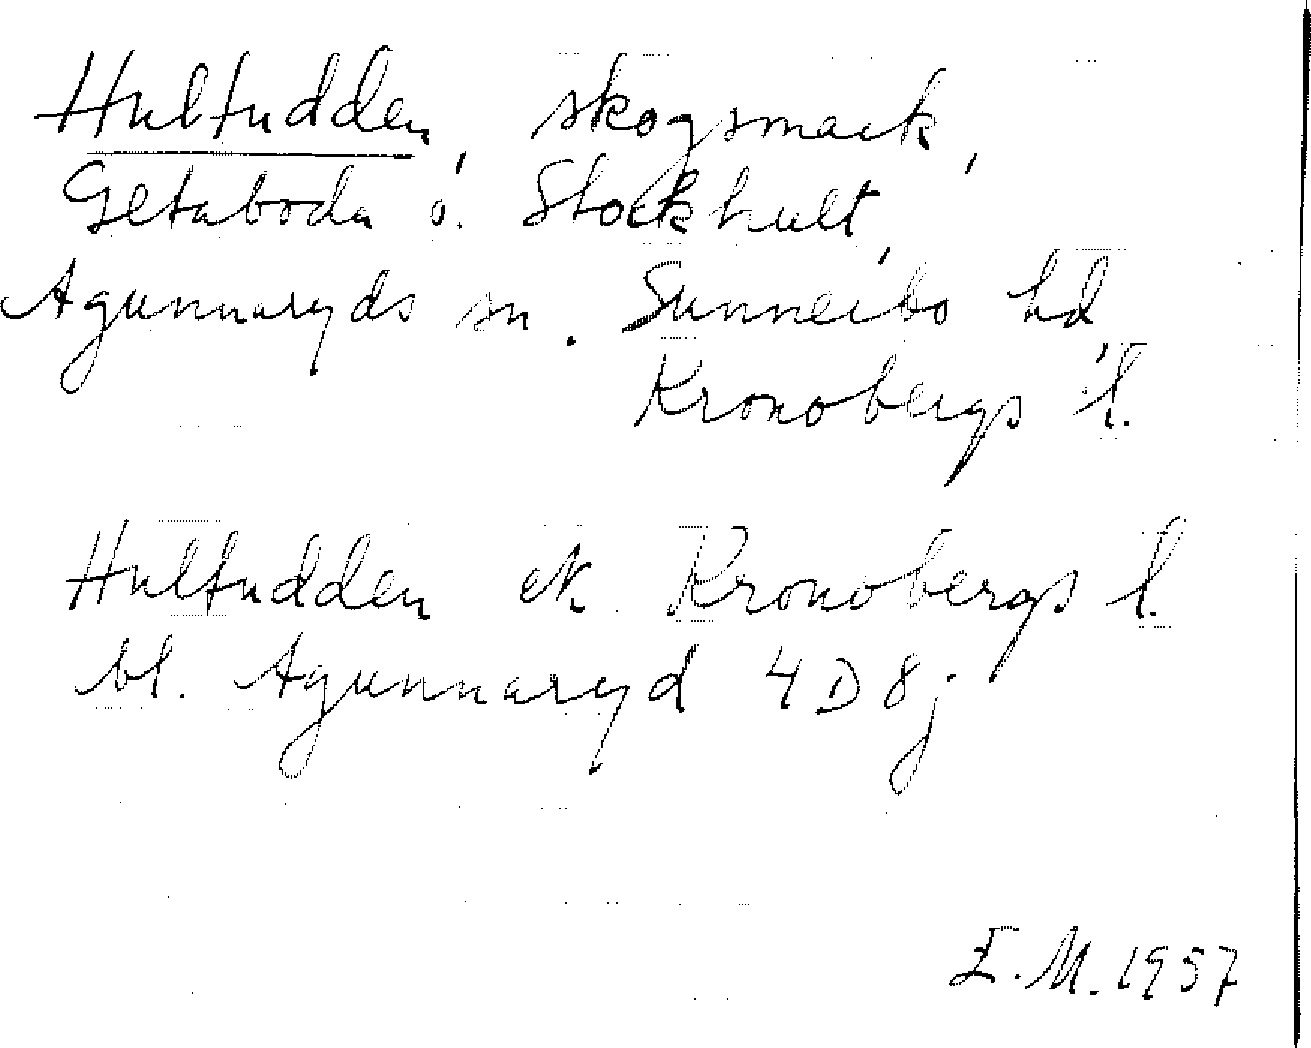 Hultudden, skogsmark,
Getaboda o. Stockhult,
Agunnaryds sn. Sunnerbo hd,
Kronobergs l.
Hultudden ek. Kronobergs l.
bl. Agunnaryd 4D8j
E.M. 1957